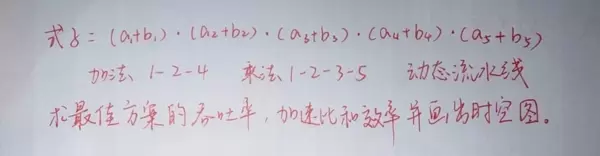 式 g = (a₁+b₁)·(a₂+b₂)·(a₃+b₃)·(a₄+b₄)·(a₅+b₅)
加法 1-2-4 乘法 1-2-3-5 动态流水线
求最佳方案的吞吐率，加速比和效率并画出时空图。